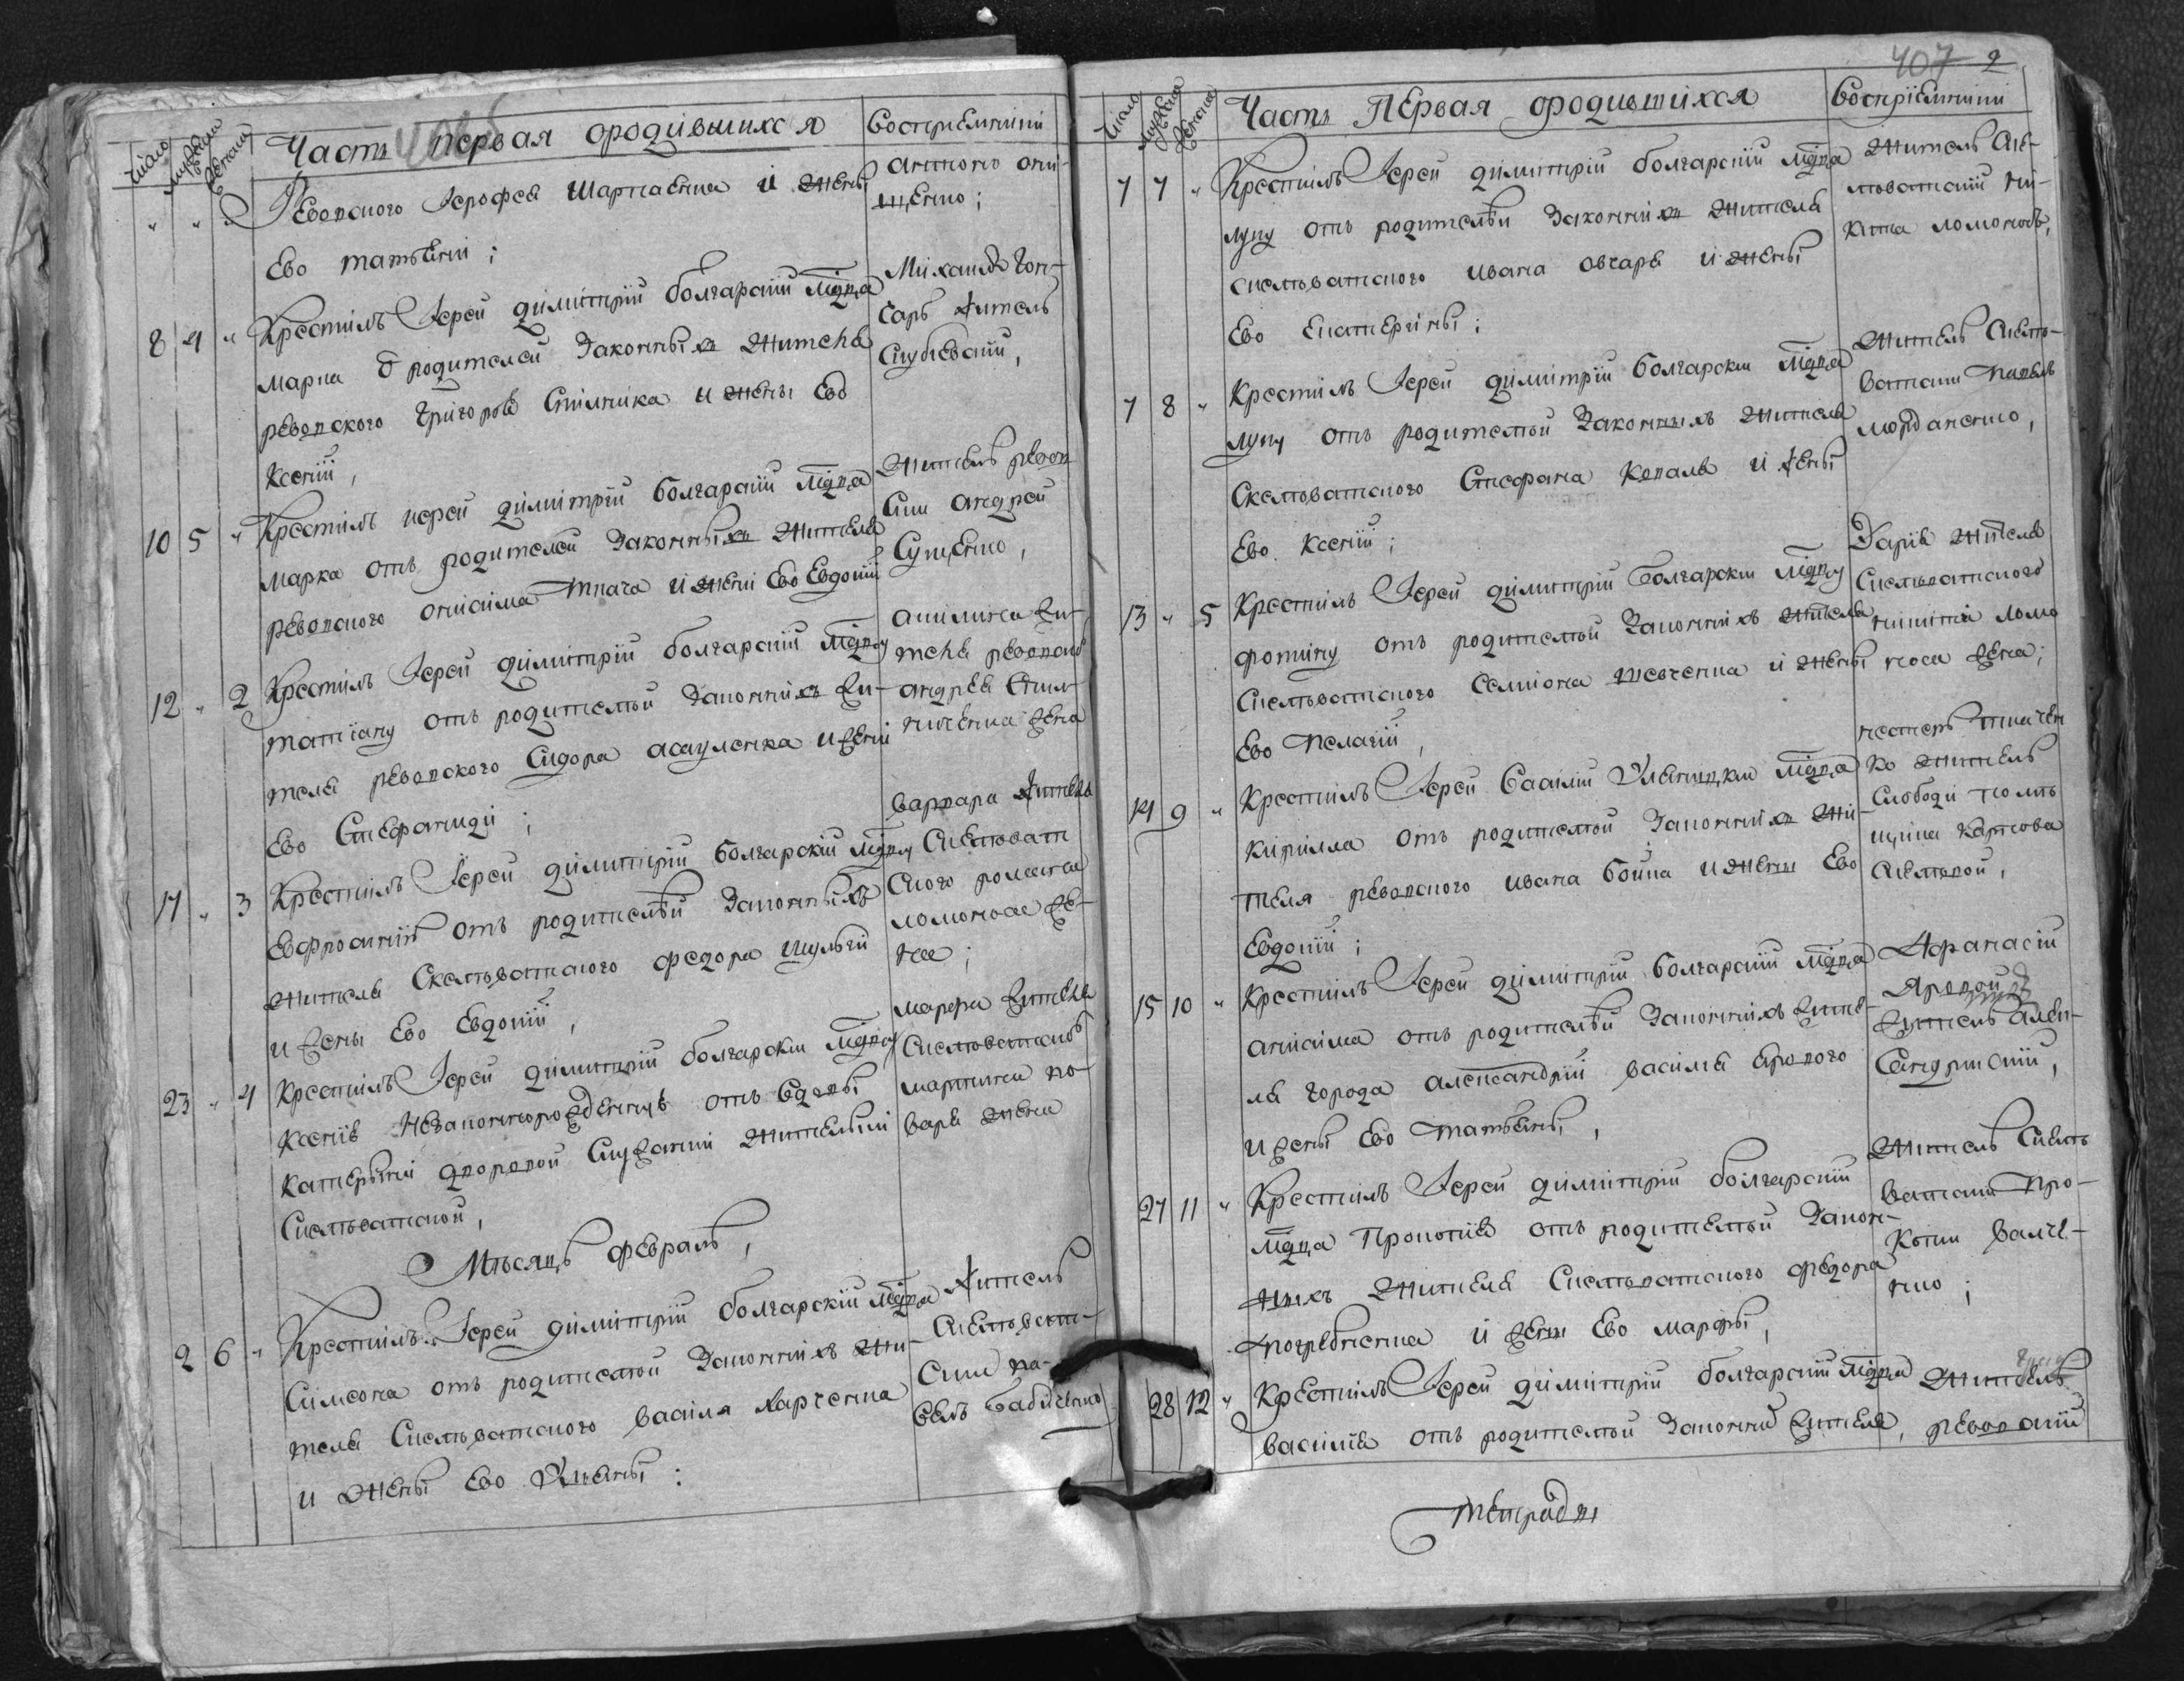 число
мужеска
женска
Часть первая ородившихся
Восприемники
" " " Ревоцкого Іерофея Шарпаенка и жены
Ево татьяни ;
8 4 " Крестилъ Іерей димитрій болгарскій мдца
марка от родителей Законныхъ жителя
ревоцкого Григорія и жены Ево
Ксеніи ,
Михаилъ
житель
10 5 " Крестилъ иерей димитрій болгарскій мдца
марка отъ родителей Законныхъ жителя
ревоцкого онисима ткача и жени Ево Евдокіи
Житель ревоц
кій андрей
Сущенко ,
12 " 2 Крестилъ Іерей димитрій болгарскій мдцу
татіану отъ родителей Законнихъ жи-
теля ревоцкого Сидора асауленка и жени
Ево Стефаниди ;
акилина жи-
теля ревоцкого
андрея
жена
17 " 3 Крестилъ Іерей димитрій болгарскій мдцу
Евфросинію отъ родителей Законныхъ
жителя Скелеватского федора шульги
и жены Ево Евдокіи ,
варвара жителя
Скелеват
ского романа
ломоноса же-
на ;
23 " 4 Крестилъ Іерей димитрій болгарскій мдцу
Ксенію Незаконнорожденну отъ вдовы
Катерыни дворовой Служаний жительки
Скелеватской ,
марфа жителя
Скелеватского
мартина ко-
варя жена
Мѣсяцъ февраль ,
2 6 " Крестилъ Іерей димитрій болгарскій мдца
Симеона отъ родителей Законнихъ жи-
теля Скелеватского василя харченка
и жены Ево Ульяны :
житель
Скелеват-
скій па-
велъ бабиченко
407 2
число
мужеска
женска
Часть Первая ородившихся
Воспріемники
7 7 " Крестилъ Іерей димитрій болгарскій мдца
луку отъ родителей Законнихъ жителя
скелеватского ивана овчаря и жены
Ево Екатерины ;
Житель Ске-
леватскій ни-
кита ломоносъ ,
7 8 " Крестилъ Іерей димитрій болгарскій мдца
луку отъ родителей Законныхъ жителя
Скелеватского Стефана Коваля и жены
Ево Ксеніи ;
Житель Скеле-
ватскій павелъ
13 " 5 Крестилъ Іерей димитрій болгарскій мдцу
фотину отъ родителей Законнихъ жителя
Скелеватского Семіона шевченка и жены
Ево Пелагіи ,
Дарія жителя
Скелеватского
никити ломо
носа жена ;
14 9 " Крестилъ Іерей Василій мдца
Кирилла отъ родителей Законнихъ жи-
теля ревоцкого ивана бойка и жены Ево
Евдокіи ;
нестеръ ткачен
ко житель
Слободи
15 10 " Крестилъ Іерей димитрій болгарскій мдца
анисима отъ родителей Законнихъ жите-
ля города александріи василя ярового
и жены Ево татьяны ,
Афанасій
Яровой
житель алек-
сандрийскій ,
27 11 " Крестилъ Іерей димитрій болгарскій
мдца Прокопія отъ родителей Закон-
ныхъ жителя Скелеватского федора
погребненка и жены Ево марфы ,
Житель Скеле
ватскій Про-
копій
28 12 " Крестилъ Іерей димитрій болгарскій мдца
василія отъ родителей Законни жителя ,
Житель
ревоцкій
тетради